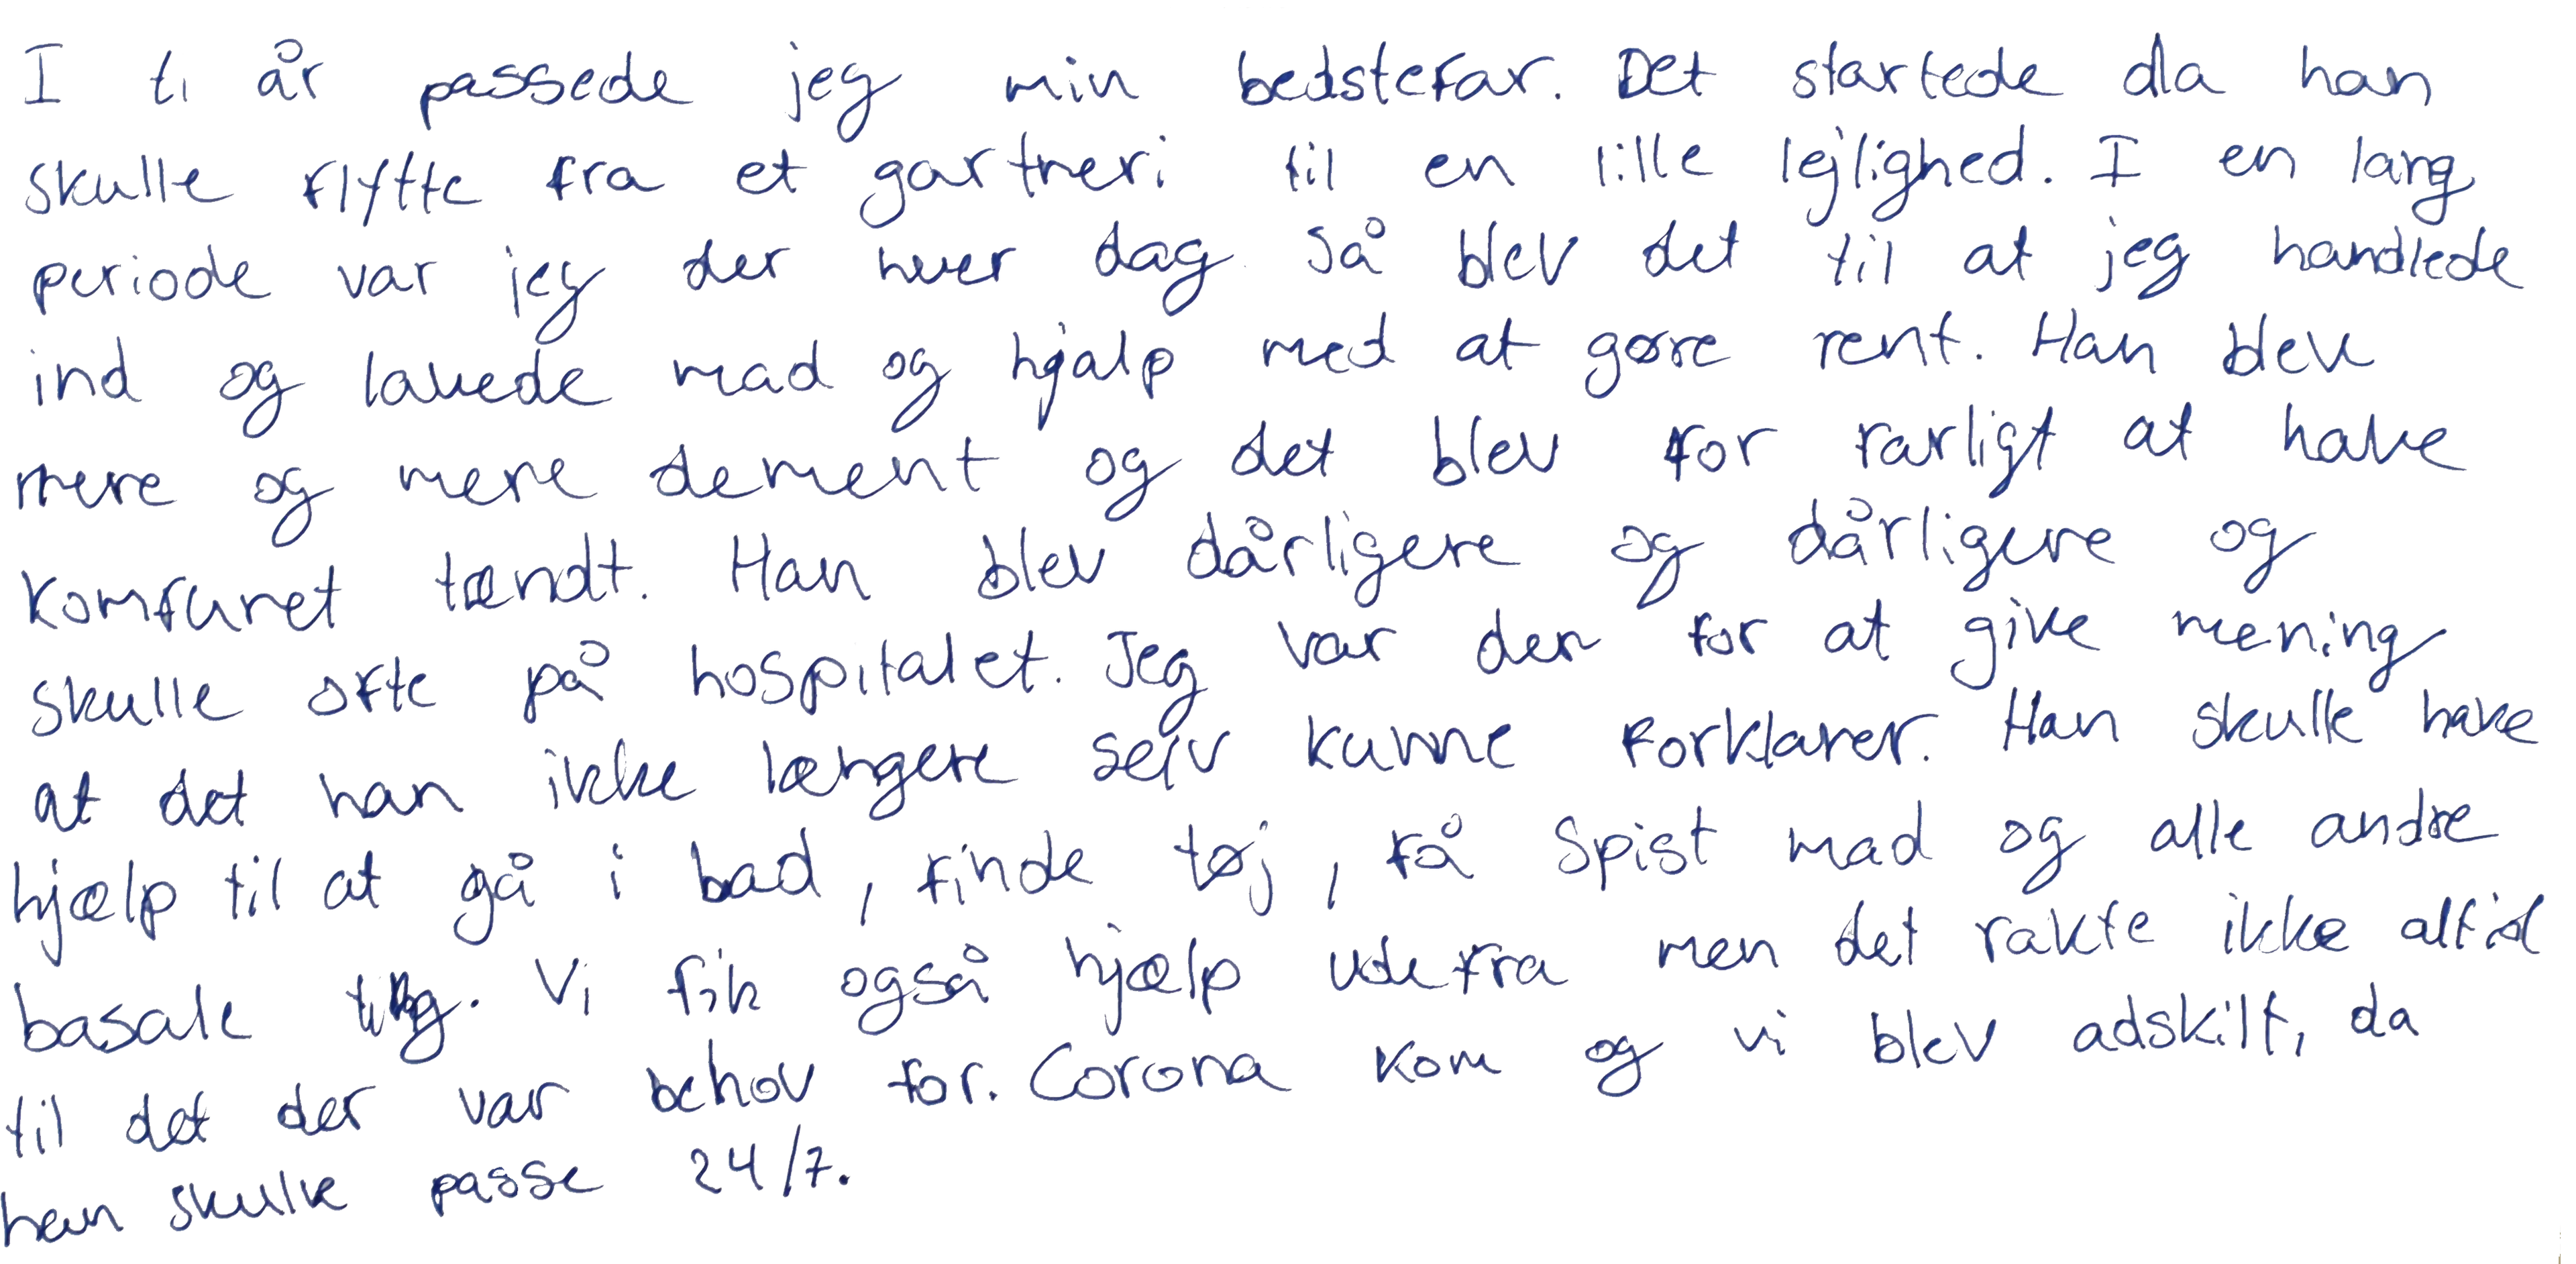 I ti år passede jeg min bedstefar. Det startede da han
skulle flytte fra et gartneri til en lille lejlighed. I en lang
periode var jeg der hver dag. Så blev det til at jeg handlede
ind og lavede mad og hjalp med at gøre rent. Han blev
mere og mere dement og det blev for farligt at have
komfuret tændt. Han blev dårligere og dårligere og
skulle ofte på hospitalet. Jeg var der for at give mening
at det han ikke længere selv kunne forklarer. Han skulle have
hjælp til at gå i bad, finde tøj, få spist mad og alle andre
basale ting. Vi fik også hjælp udefra men det rakte ikke altid
til det der var behov for. Corona kom og vi blev adskilt, da
han skulle passe 24/7.